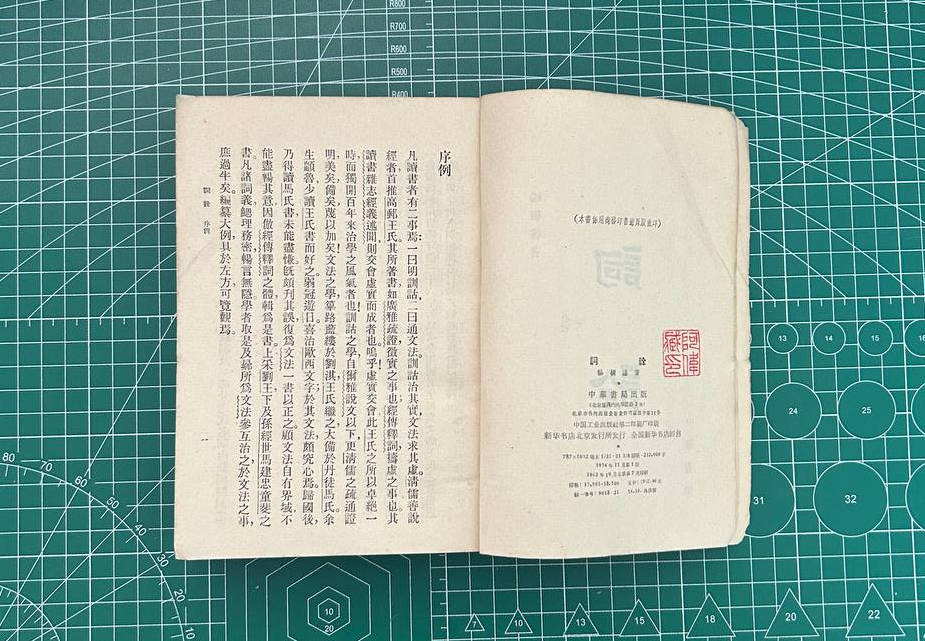 （本書係用商務印書館原版重印）
詞 詮
楊樹達著
中華書局出版
中国工业出版社第二印刷厂印装
新华书店北京发行所发行 全国新华书店經售
阿偉藏印
序例
凡讀書者有二事焉：一曰明訓詁，二曰通文法。訓詁治其實，文法求其虛。清儒善說
經者，首推高郵王氏。其所著書，如廣雅疏證，徵實之事也；經傳釋詞，擣虛之事也；其
讀書雜志經義述聞，則交會虛實而成者也。嗚乎！虛實交會，此王氏之所以卓絕一
時，而獨開百年來治學之風氣者也！訓詁之學，自爾雅說文以下，更清儒之疏通證
明，美矣備矣，蔑以加矣。文法之學，篳路藍縷於劉淇王氏，繼之，大備於丹徒馬氏。余
生顓魯，少讀王氏書而好之。弱冠遊日，喜治歐西文字，於其文法，頗究心焉。歸國後，
乃得讀馬氏書，未能盡慊；旣頗刊其誤，復爲文法一書以正之。顧文法自有界域，不
能盡暢其意，因倣經傳釋詞之體，輯爲是書，上采劉王，下及孫經世馬建忠童斐之
書，凡諸詞義，總理務密，暢言無隱。學者取是及曏所爲文法參互治之，於文法之事，
庶過半矣。編纂大例，具於左方，可覽觀焉。
詞詮 序例
一
R800
R700
R600
R500
R400
13
15
16
24
25
31
32
80
70
60
50
40
30
20
10
10
20
7
10
13
15
18
20
22